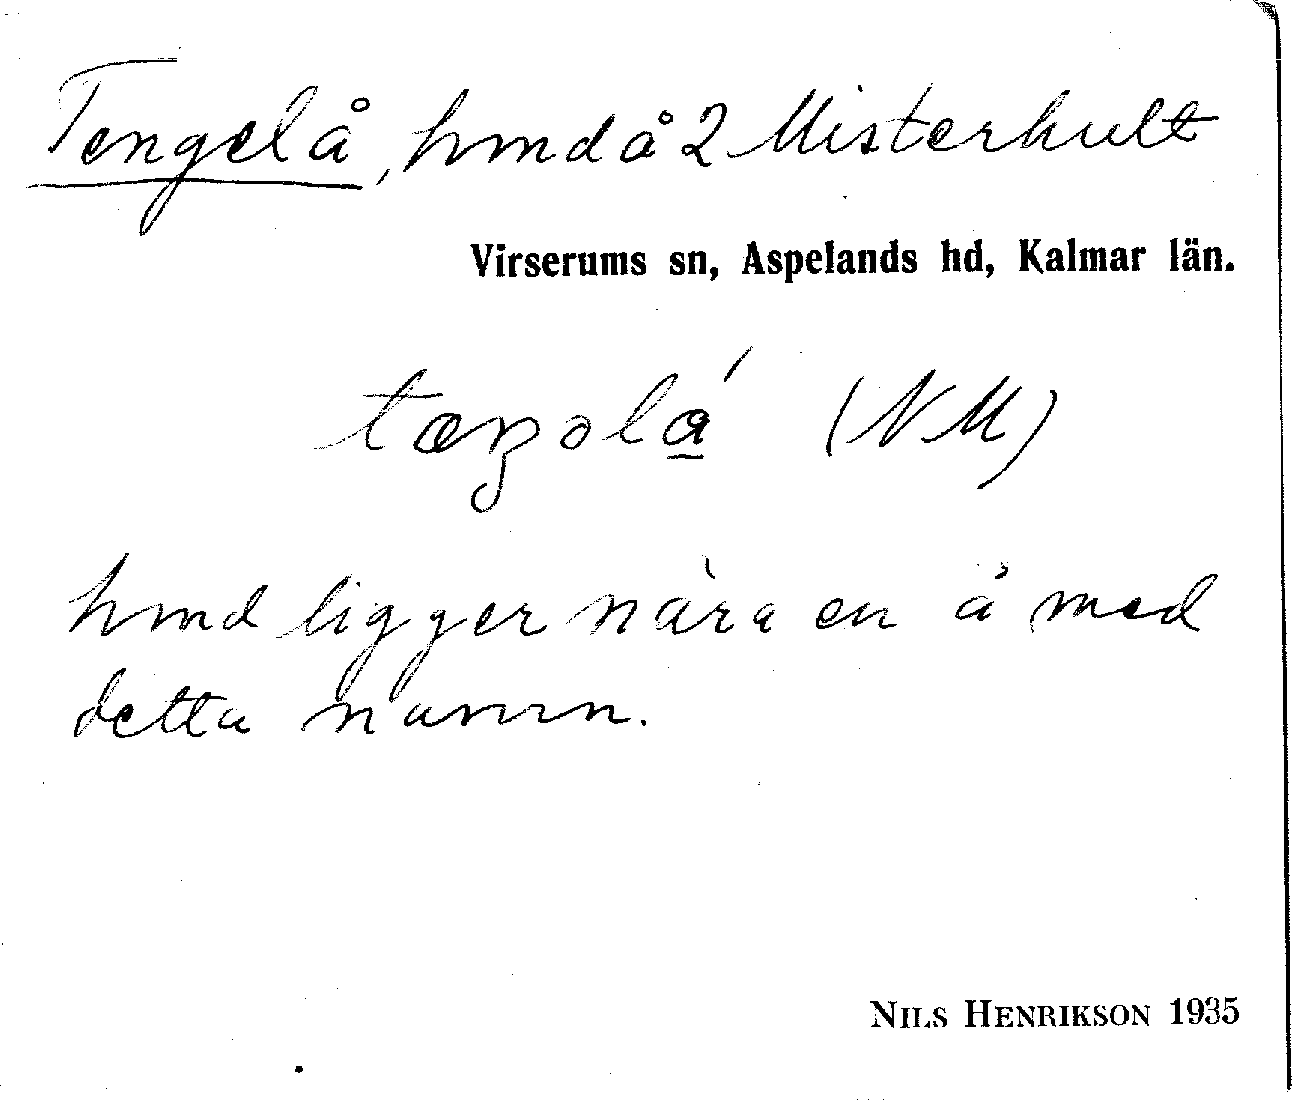 Tengelå, hmd å 2 Misterhult
Virserums sn, Aspelands hd, Kalmar län.
(NM)
hmd ligger nära en å med
detta namn.
NILS HENRIKSON 1935